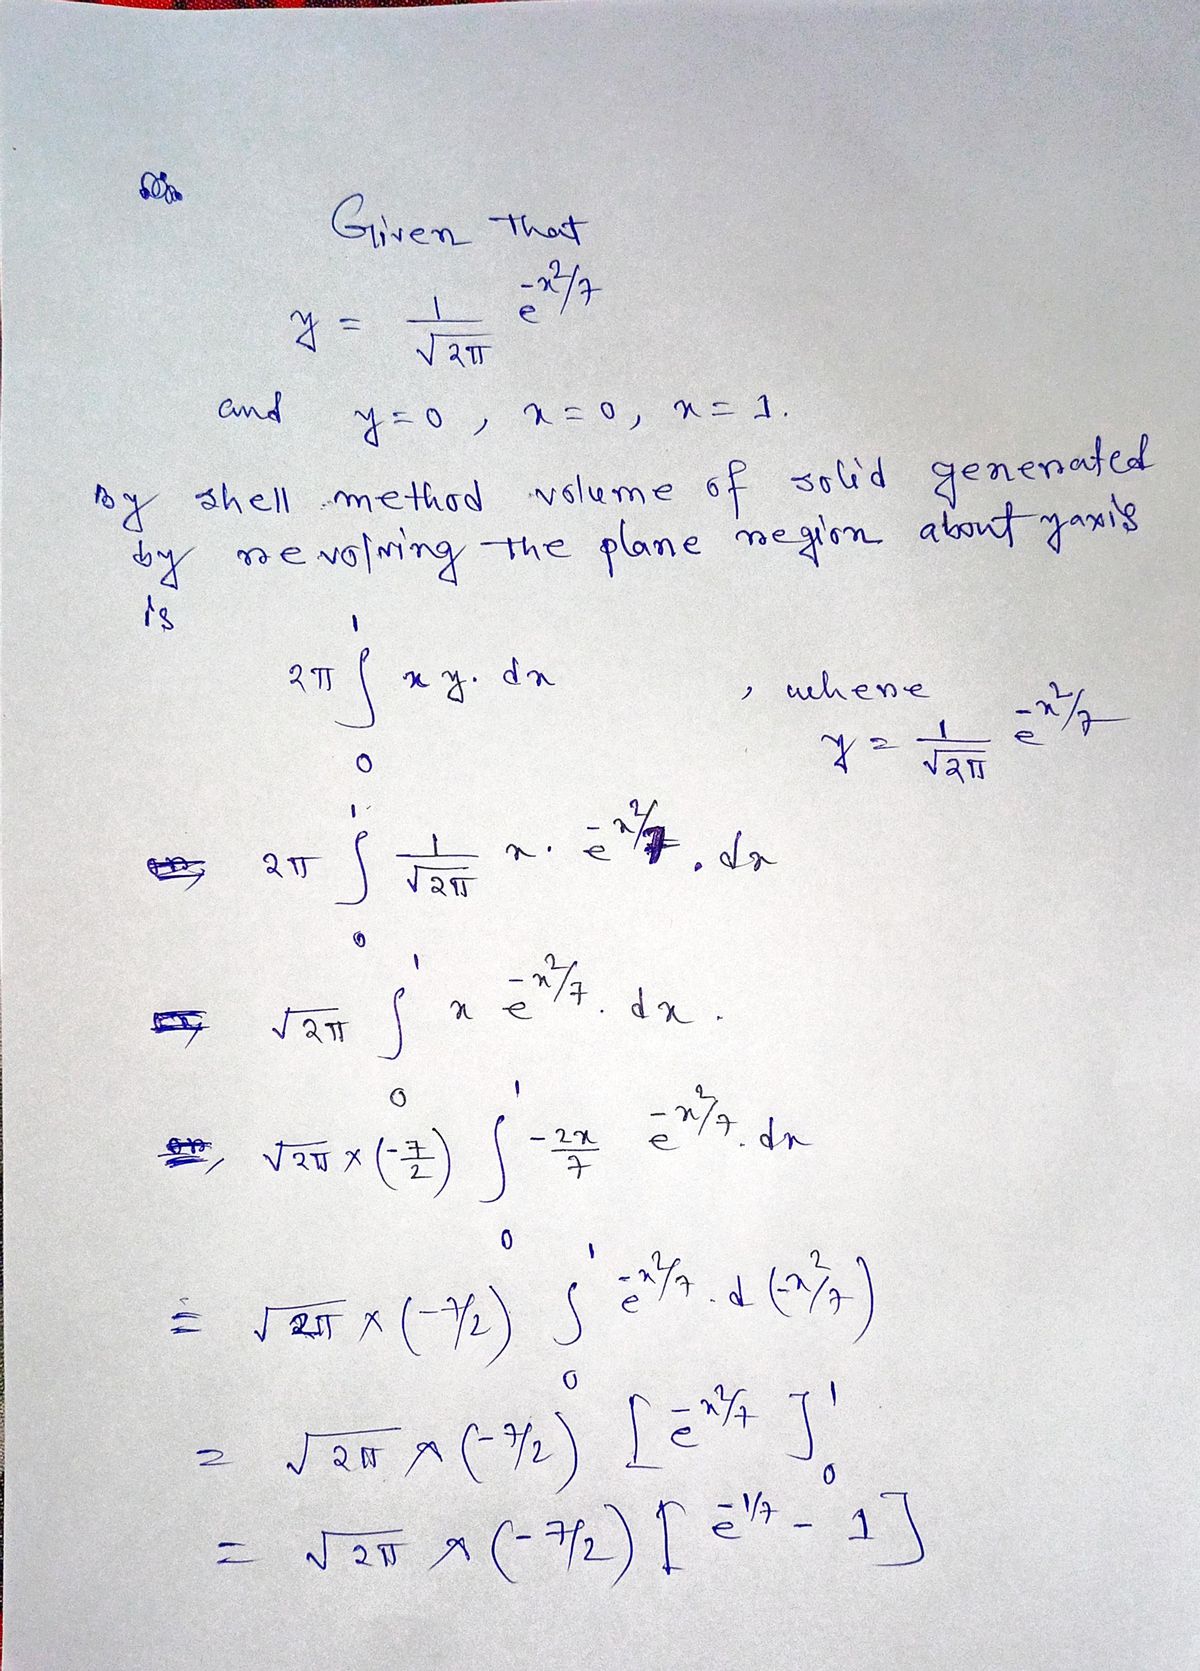 Given That
y = 1/√2π e^(-x²/7)
and y=0, x=0, x=1.
By shell method volume of solid generated
by revolving the plane region about y axis
is
2π ∫₀¹ x y. dx , where
y = 1/√2π e^(-x²/7)
2π ∫₀¹ 1/√2π x. e^(-x²/7). dx
√2π ∫₀¹ x e^(-x²/7). dx.
√2π × (-7/2) ∫₀¹ -2x/7 e^(-x²/7). dx
= √2π × (-7/2) ∫₀¹ e^(-x²/7). d(-x²/7)
= √2π × (-7/2) [e^(-x²/7)]₀¹
= √2π × (-7/2) [e^(-1/7) - 1]